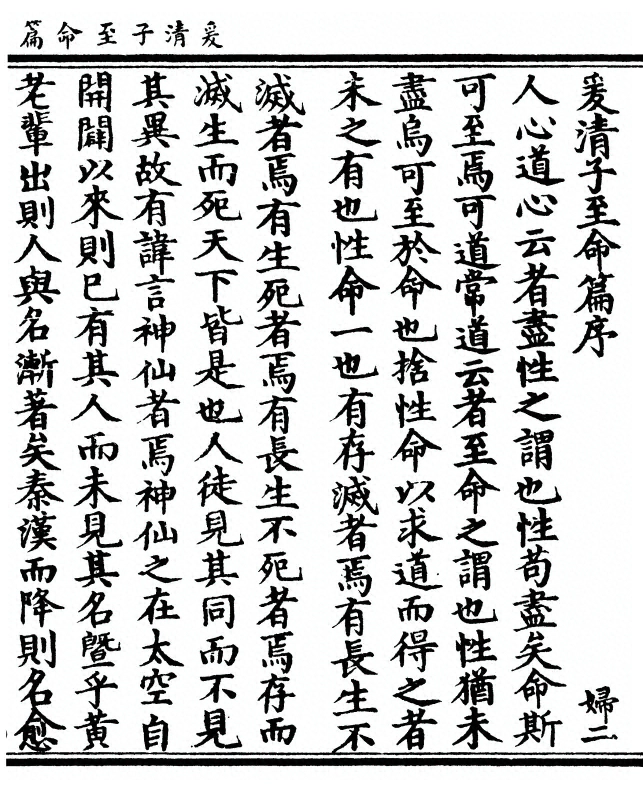 爰清子至命篇
爰清子至命篇序
婦二
人心道心云者盡性之謂也性苟盡矣命斯
可至焉可道常道云者至命之謂也性猶未
盡烏可至於命也捨性命以求道而得之者
未之有也性命一也有存滅者焉有長生不
滅者焉有生死者焉有長生不死者焉存而
滅生而死天下皆是也人徒見其同而不見
其異故有諱言神仙者焉神仙之在太空自
開闢以來則已有其人而未見其名曁乎黃
老輩出則人與名漸著矣秦漢而降則名愈